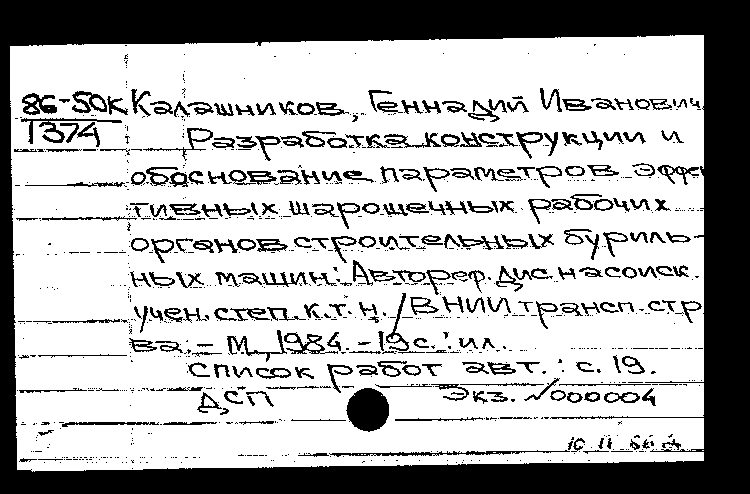 86-50К Калашников, Геннадий Иванович
1374 Разработка конструкции и
обоснование параметров эффек
тивных шарошечных рабочих
органов строительных буриль-
ных машин: Автореф. дис. на соиск.
учен. степ. к.т.н. / ВНИИ трансп. стр
ва. - М., 1984. - 19 с.: ил.
Список работ авт.: с. 19.
ДСП Экз. №000004
10 11